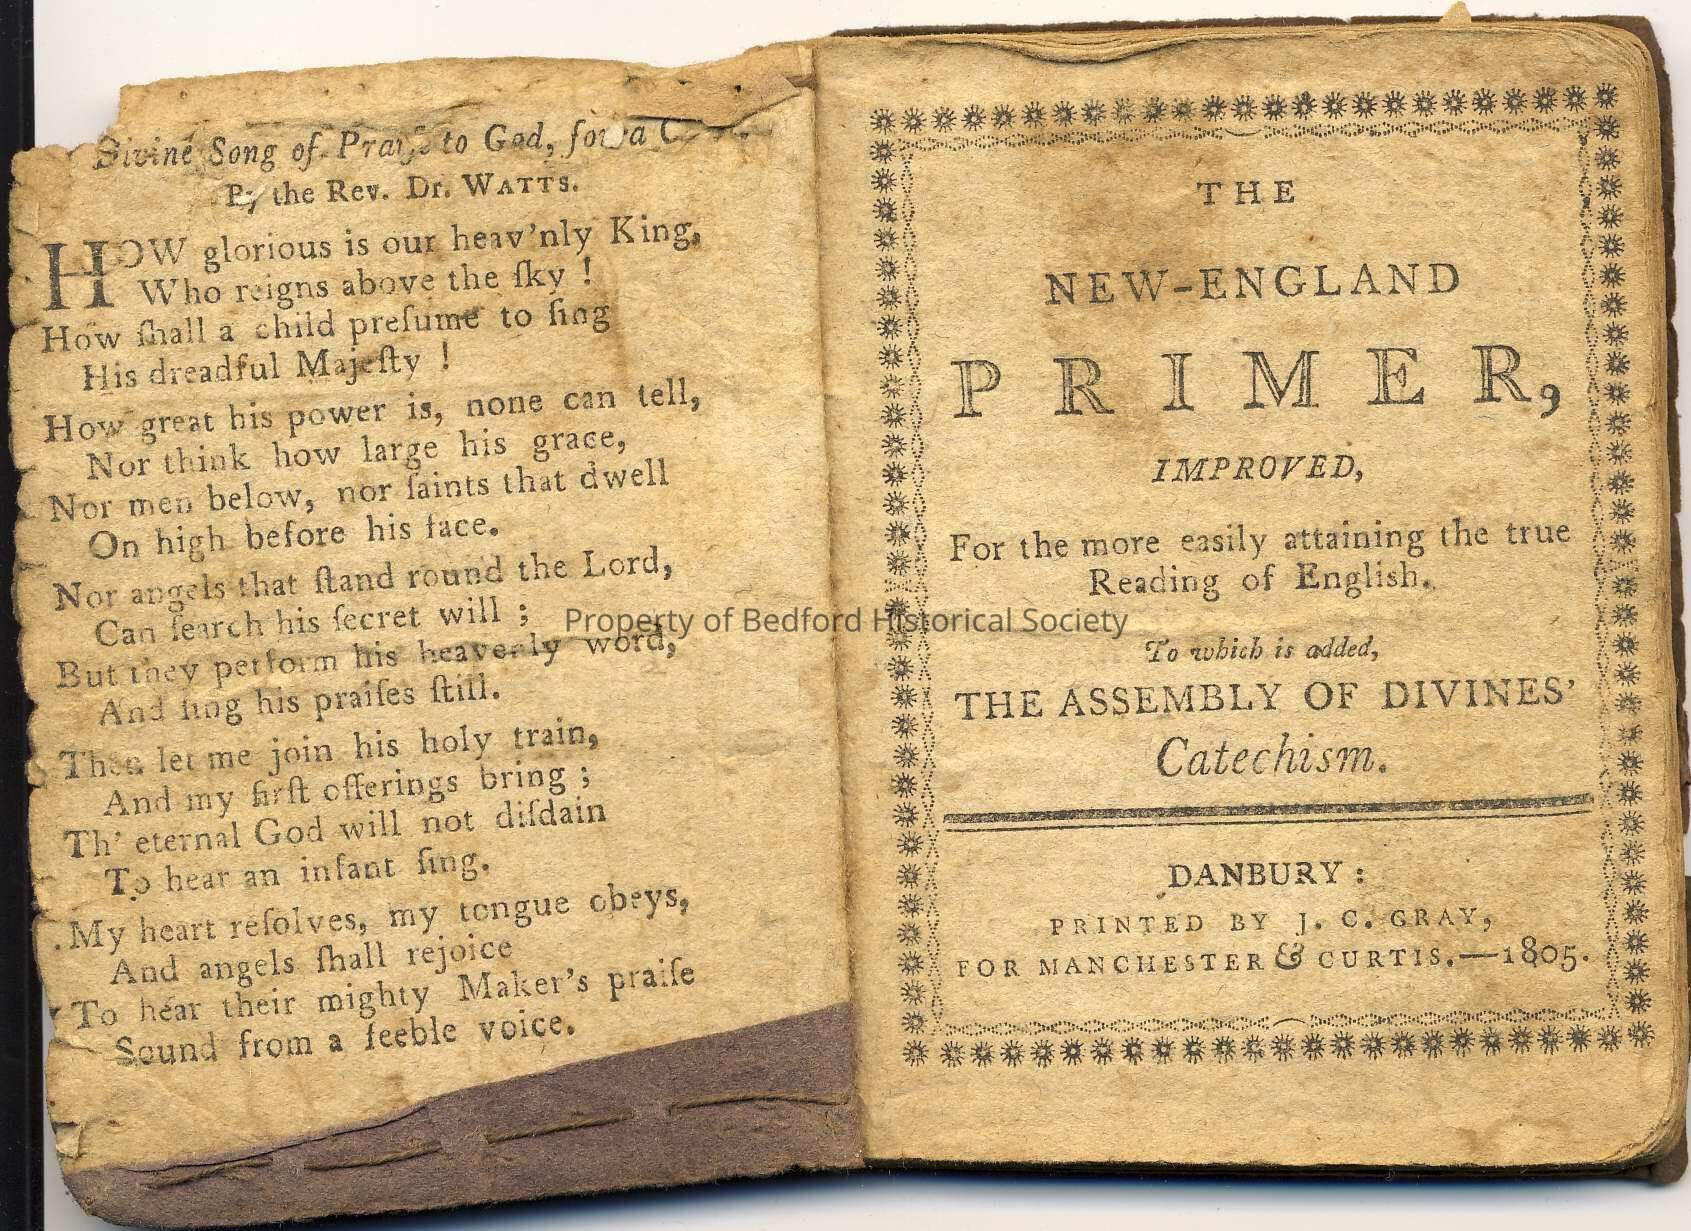 Divine Song of Praiſe to God, for a
By the Rev. Dr. WATTS.
HOW glorious is our heav'nly King,
Who reigns above the ſky !
How ſhall a child preſume to ſing
His dreadful Majeſty !
How great his power is, none can tell,
Nor think how large his grace,
Nor men below, nor ſaints that dwell
On high before his face.
Nor angels that ſtand round the Lord,
Can ſearch his ſecret will ;
But they perform his heavenly word,
And ſing his praiſes ſtill.
Then let me join his holy train,
And my firſt offerings bring ;
Th' eternal God will not diſdain
To hear an infant ſing.
My heart reſolves, my tongue obeys,
And angels ſhall rejoice
To hear their mighty Maker's praiſe
Sound from a feeble voice.
THE
NEW-ENGLAND
PRIMER,
IMPROVED,
For the more easily attaining the true
Reading of English.
To which is added,
THE ASSEMBLY OF DIVINES'
Catechism.
DANBURY :
PRINTED BY J. C. GRAY,
FOR MANCHESTER & CURTIS.—1805.
Property of Bedford Historical Society